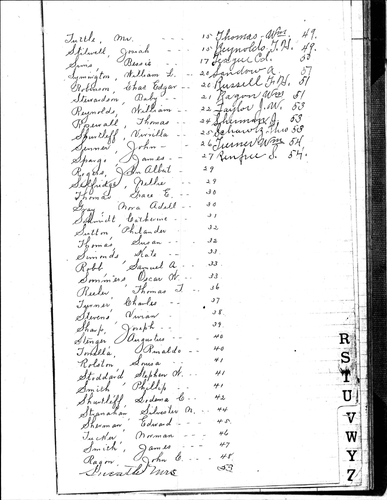 Tuttle, Mr. - - - 15 Thomas - Wm. 49.
Stilwell, Josiah - - 15 Reynolds, F. H. 49
Sims, Bessie 17 Teague Ed. 50
Symington, William L. - - 20 Sandow A 51
Robinson, Chas Edgar - - 20 Russell F. H. 51
Stewardson, Baby - - 21 Ragon Wm 51
Reynolds, William - - 22 Taylor J. W. 53
Rosewall Thomas - - 24 Sherman J. 53
Shurtleff, Vernilla - - 25 Schawtz Theo 53
Senner, John - - - 26 Turner Wm 54.
Spargo James - - - 27 Renfree S. 54.
Rogers, John Albert 29
Selfridge, Nellie - - 29
Thomas Grace E. - - 30
Gray, Nora Adell - - 30
Schmidt Catherine - - 31
Sutton Philander - - 32
Thomas Susan - - 32
Simonds Kate - - 33
Robb Samuel A. - - 33.
Sommers Oscar W. - - 33.
Reeler Thomas T. - 36
Turner Charles - - 37
Stevens Vivian - - 38.
Sharp, Joseph - - 39.
Stenger Augustus - - 40
Tonella, Rinaldo - - 40
Rolston Sousa - - 41
Stoddard Stephen W. - 41
Smith Phillip - - 41
Shurtleff, Sodema C. - 42
Stranahan Silvester N. - 44
Sherman Edward - - 45
Tucker Norman - - 46
Smith, James - - 47
Ragon John E. - - 48.
Mrs 53
R
S
T
U
V
W
Y
Z